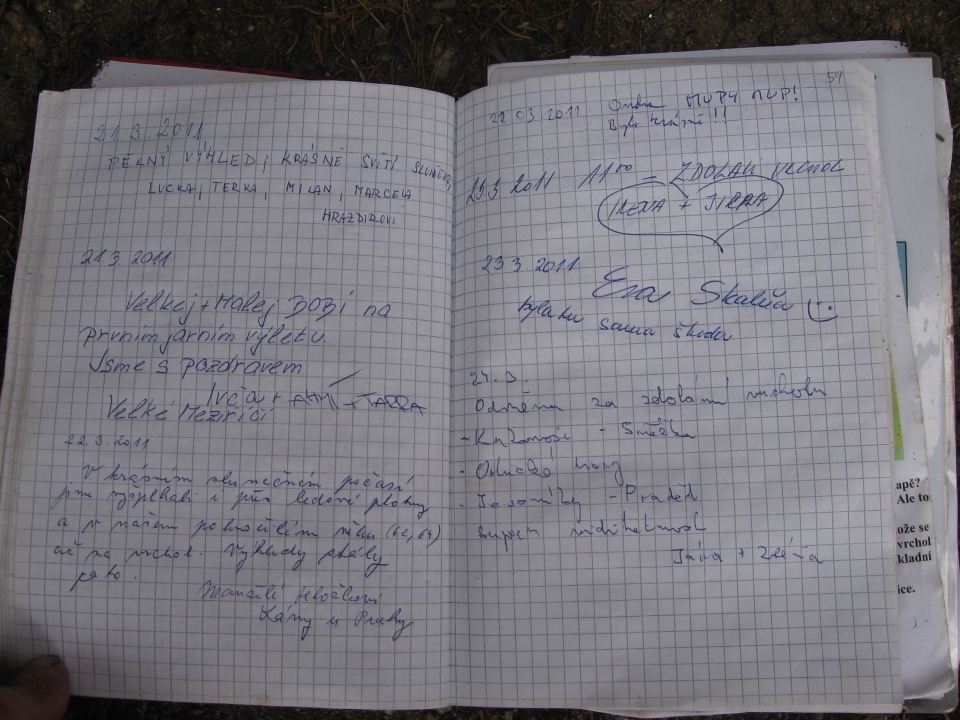 21.3.2011
PĚKNÝ VÝHLED, KRÁSNĚ SVÍTÍ SLUNÍČKO,
LUCKA, TERKA, MILAN, MARCELA
HRAZDÍROVI
21.3.2011
Velkej + Malej BOBÍ na
prvním jarním výletu
Jsme s pozdravem
Ivča +
Velké Meziříčí
22.3.2011
V krásném slunečném počasí
jsme vyšplhali i přes ledové pláty
a v našem pokročilém věku (62, 64)
až na vrchol. Výhledy stály
za to.
Manželé
Lány u Prahy
59
22 03 2011 Ondra
Bylo krásně!!
23.3 2011 11 00 = ZDOLALI VRCHOL
IRENA + JIRKA
23.3.2011
Eva
byla tu sama škoda
24.3.
Odměna za zdolání vrcholu
- Krkonoše - Sněžka
- Orlické hory
- Jeseníky - Praděd
super viditelnost
Jára +
apě?
Ale to
ože se
vrchol
kladní
ice.